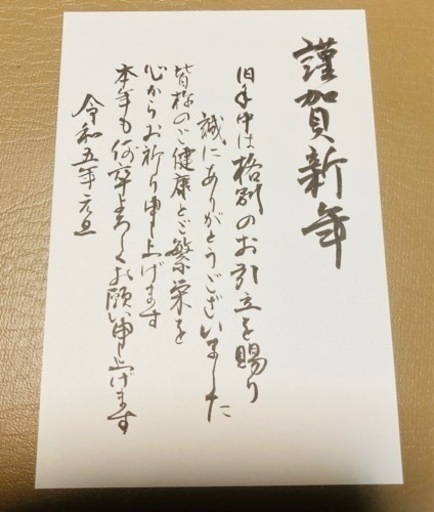 謹賀新年
旧年中は格別のお引立を賜り
誠にありがとうございました
皆様のご健康とご繁栄を
心からお祈り申し上げます
本年も何卒よろしくお願い申し上げます
令和五年元旦